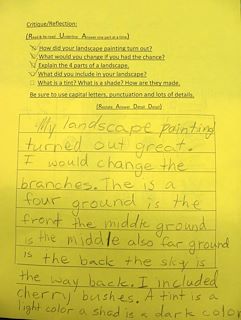 Critique/Reflection:
(Read & Re-read Underline Answer one part at a time)
How did your landscape painting turn out?
What would you change if you had the chance?
Explain the 4 parts of a landscape.
What did you include in your landscape?
What is a tint? What is a shade? How are they made.
Be sure to use capital letters, punctuation and lots of details.
(Restate Answer Detail Detail)
My landscape painting
turned out great.
I would change the
branches. The is a
four ground is the
front the middle ground
is the middle also far ground
is the back the sky is
the way back. I included
cherry bushes. A tint is a
light color a shad is a dark color